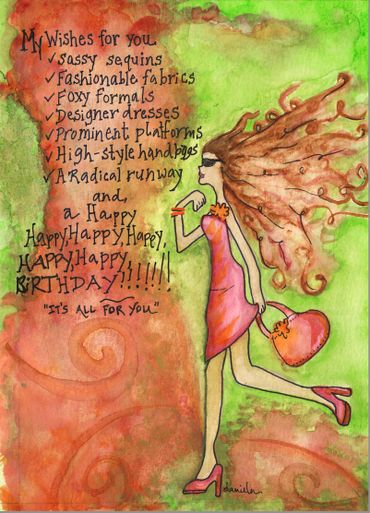 My Wishes for you
✓ Sassy sequins
✓ Fashionable fabrics
✓ Foxy formals
✓ Designer dresses
✓ Prominent platforms
✓ High-style handbags
✓ A Radical runway
and
a Happy
Happy, Happy, Happy,
Happy, Happy,
BiRTHDAY!!!!!!!
"IT'S ALL FOR YOU"
daniela